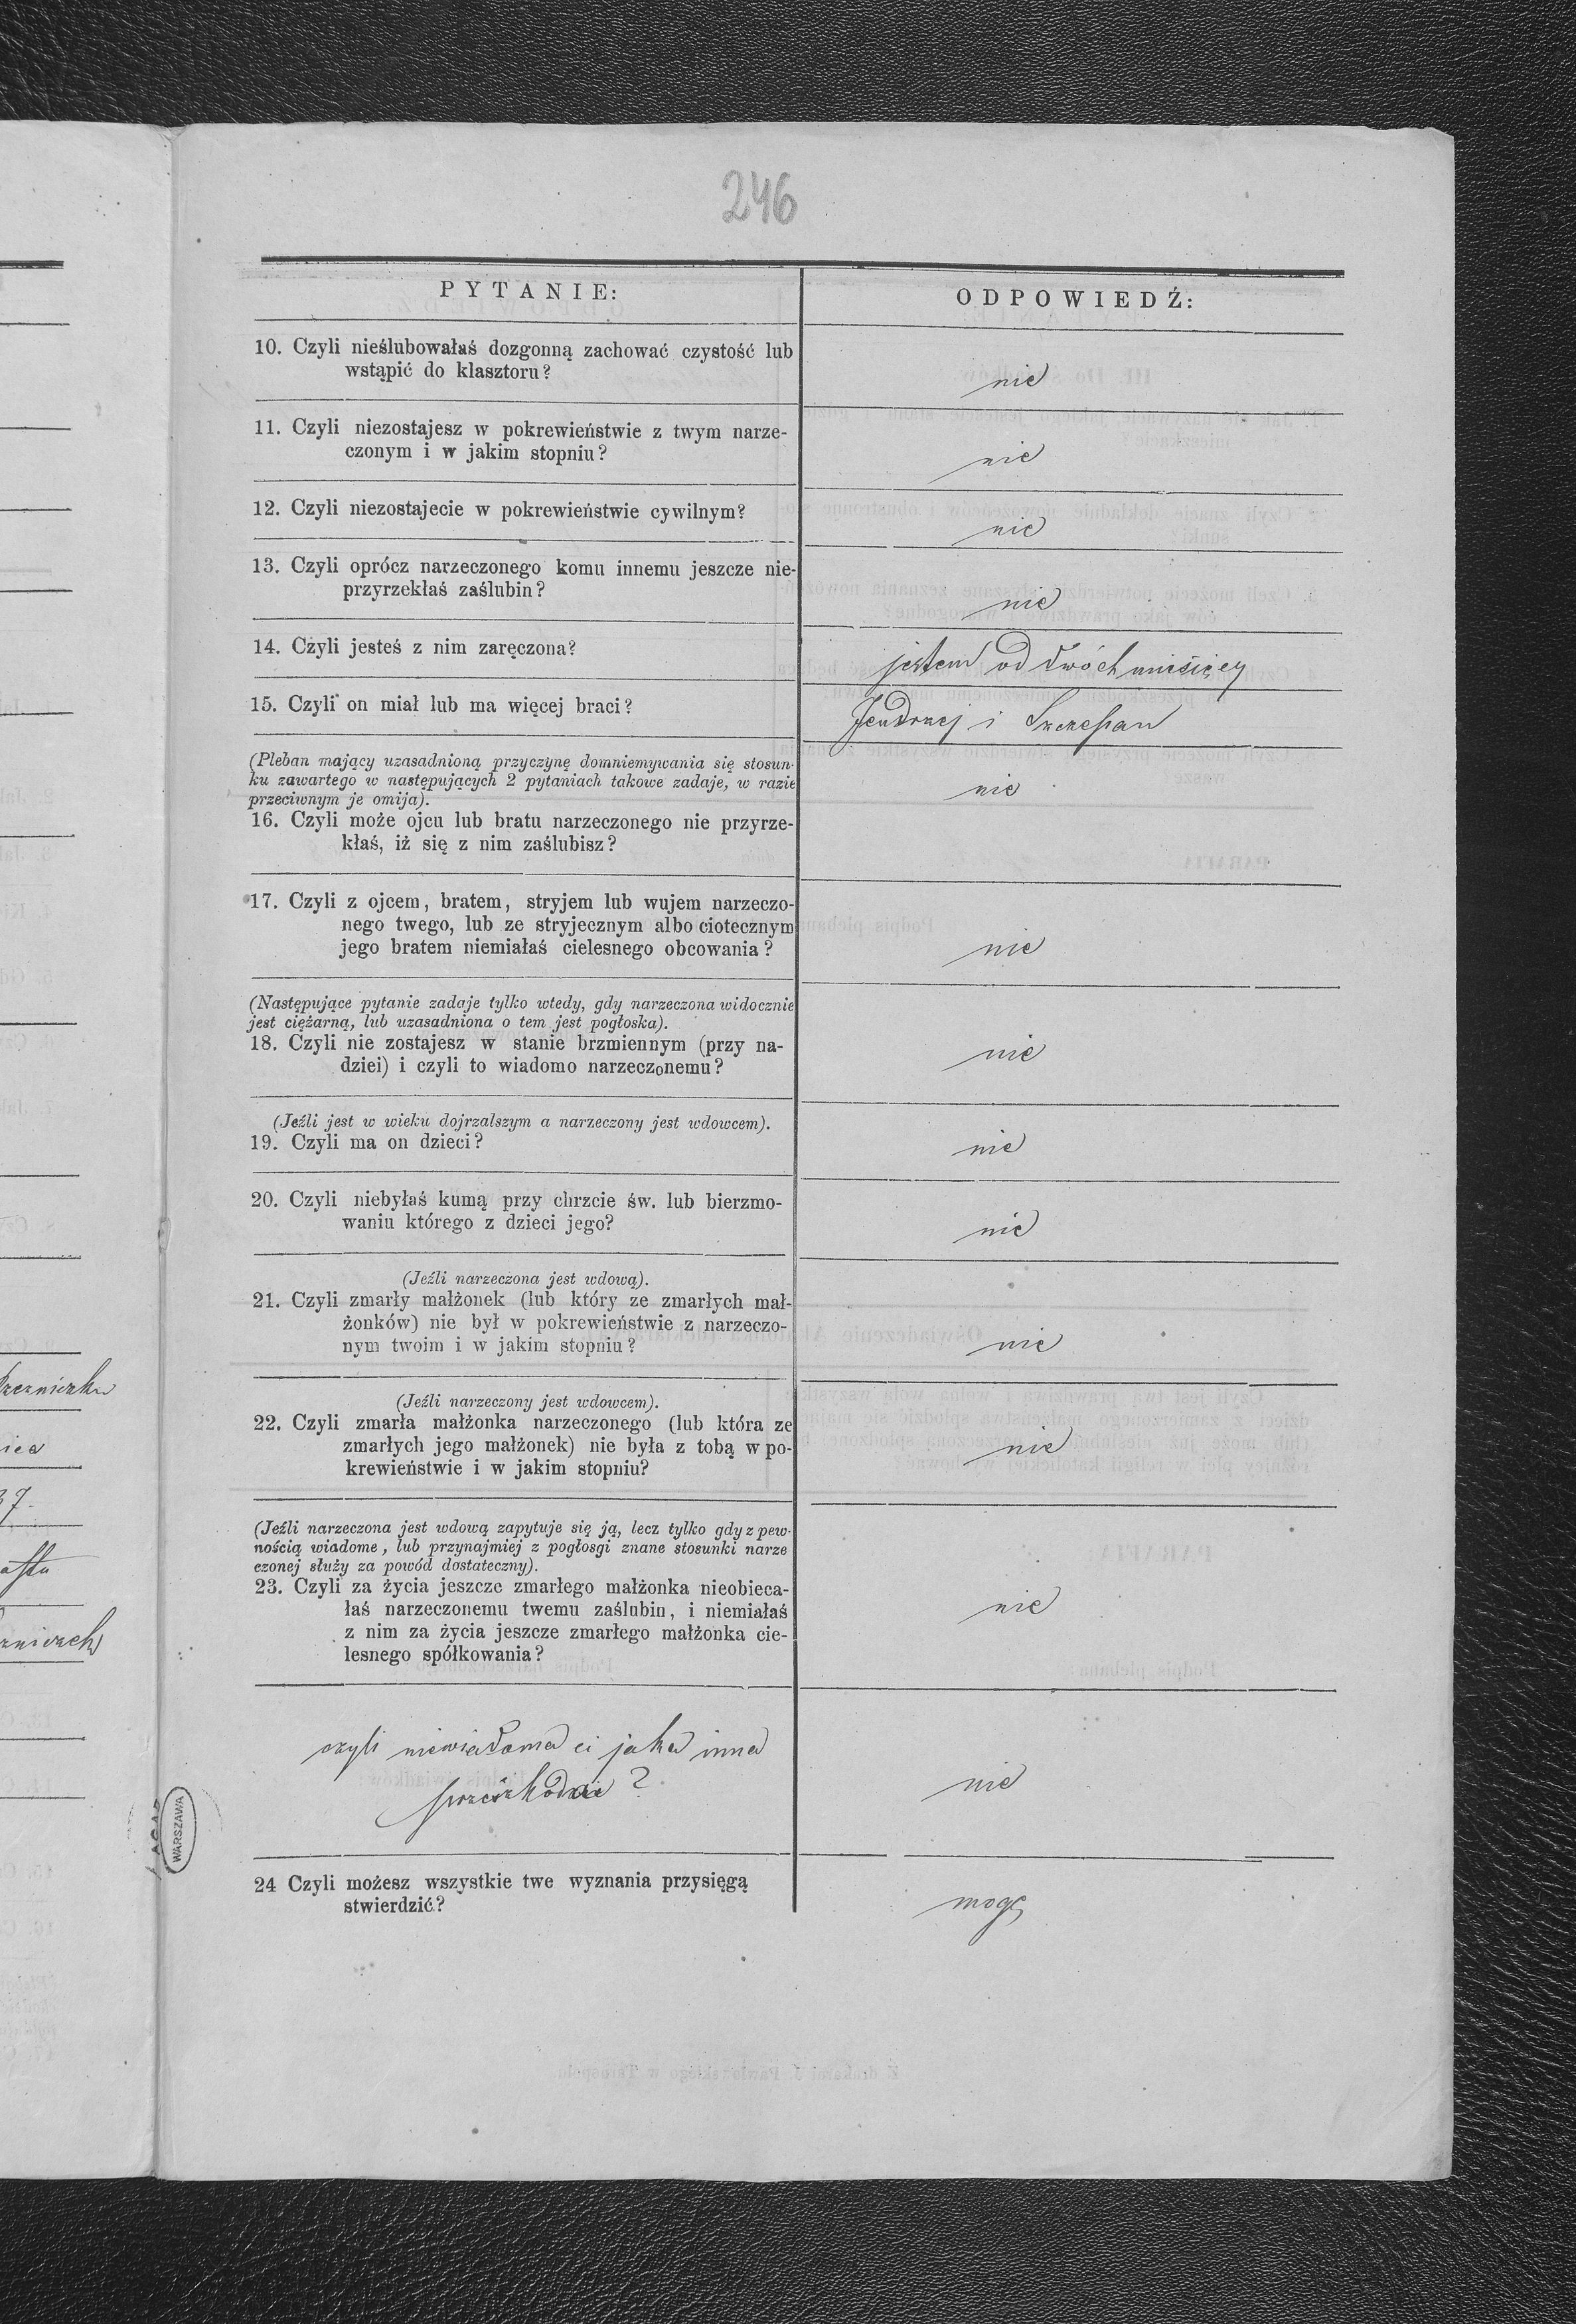 246
PYTANIE:
ODPOWIEDŹ:
10. Czyli nieślubowałaś dozgonną zachować czystość lub
wstąpić do klasztoru?
nie
11. Czyli niezostajesz w pokrewieństwie z twym narze-
czonym i w jakim stopniu?
nie
12. Czyli niezostajecie w pokrewieństwie cywilnym?
nie
13. Czyli oprócz narzeczonego komu innemu jeszcze nie-
przyrzekłaś zaślubin?
nie
14. Czyli jesteś z nim zaręczona?
jestem od dwóch miesięcy
15. Czyli on miał lub ma więcej braci?
Jendrzej i Szczepan
(Pleban mający uzasadnioną przyczynę domniemywania się stosun-
ku zawartego w następujących 2 pytaniach takowe zadaje, w razie
przeciwnym je omija).
nie
16. Czyli może ojcu lub bratu narzeczonego nie przyrze-
kłaś, iż się z nim zaślubisz?
17. Czyli z ojcem, bratem, stryjem lub wujem narzeczo-
nego twego, lub ze stryjecznym albo ciotecznym
jego bratem niemiałaś cielesnego obcowania?
nie
(Następujące pytanie zadaje tylko wtedy, gdy narzeczona widocznie
jest ciężarną, lub uzasadniona o tem jest pogłoska).
18. Czyli nie zostajesz w stanie brzmiennym (przy na-
dziei) i czyli to wiadomo narzeczonemu?
nie
(Jeźli jest w wieku dojrzalszym a narzeczony jest wdowcem).
19. Czyli ma on dzieci?
nie
20. Czyli niebyłaś kumą przy chrzcie św. lub bierzmo-
waniu którego z dzieci jego?
nie
(Jeźli narzeczona jest wdową).
21. Czyli zmarły małżonek (lub który ze zmarłych mał-
żonków) nie był w pokrewieństwie z narzeczo-
nym twoim i w jakim stopniu?
nie
(Jeźli narzeczony jest wdowcem).
22. Czyli zmarła małżonka narzeczonego (lub która ze
zmarłych jego małżonek) nie była z tobą w po-
krewieństwie i w jakim stopniu?
nie
(Jeźli narzeczona jest wdową zapytuje się ją, lecz tylko gdy z pew-
nością wiadome, lub przynajmiej z pogłosgi znane stosunki narze
czonej służy za powód dostateczny).
23. Czyli za życia jeszcze zmarłego małżonka nieobieca-
łaś narzeczonemu twemu zaślubin, i niemiałaś
z nim za życia jeszcze zmarłego małżonka cie-
lesnego spółkowania?
nie
czyli niewiadoma ci jaka inna
?
nie
24 Czyli możesz wszystkie twe wyznania przysięgą
stwierdzić?
mogę
WARSZAWA